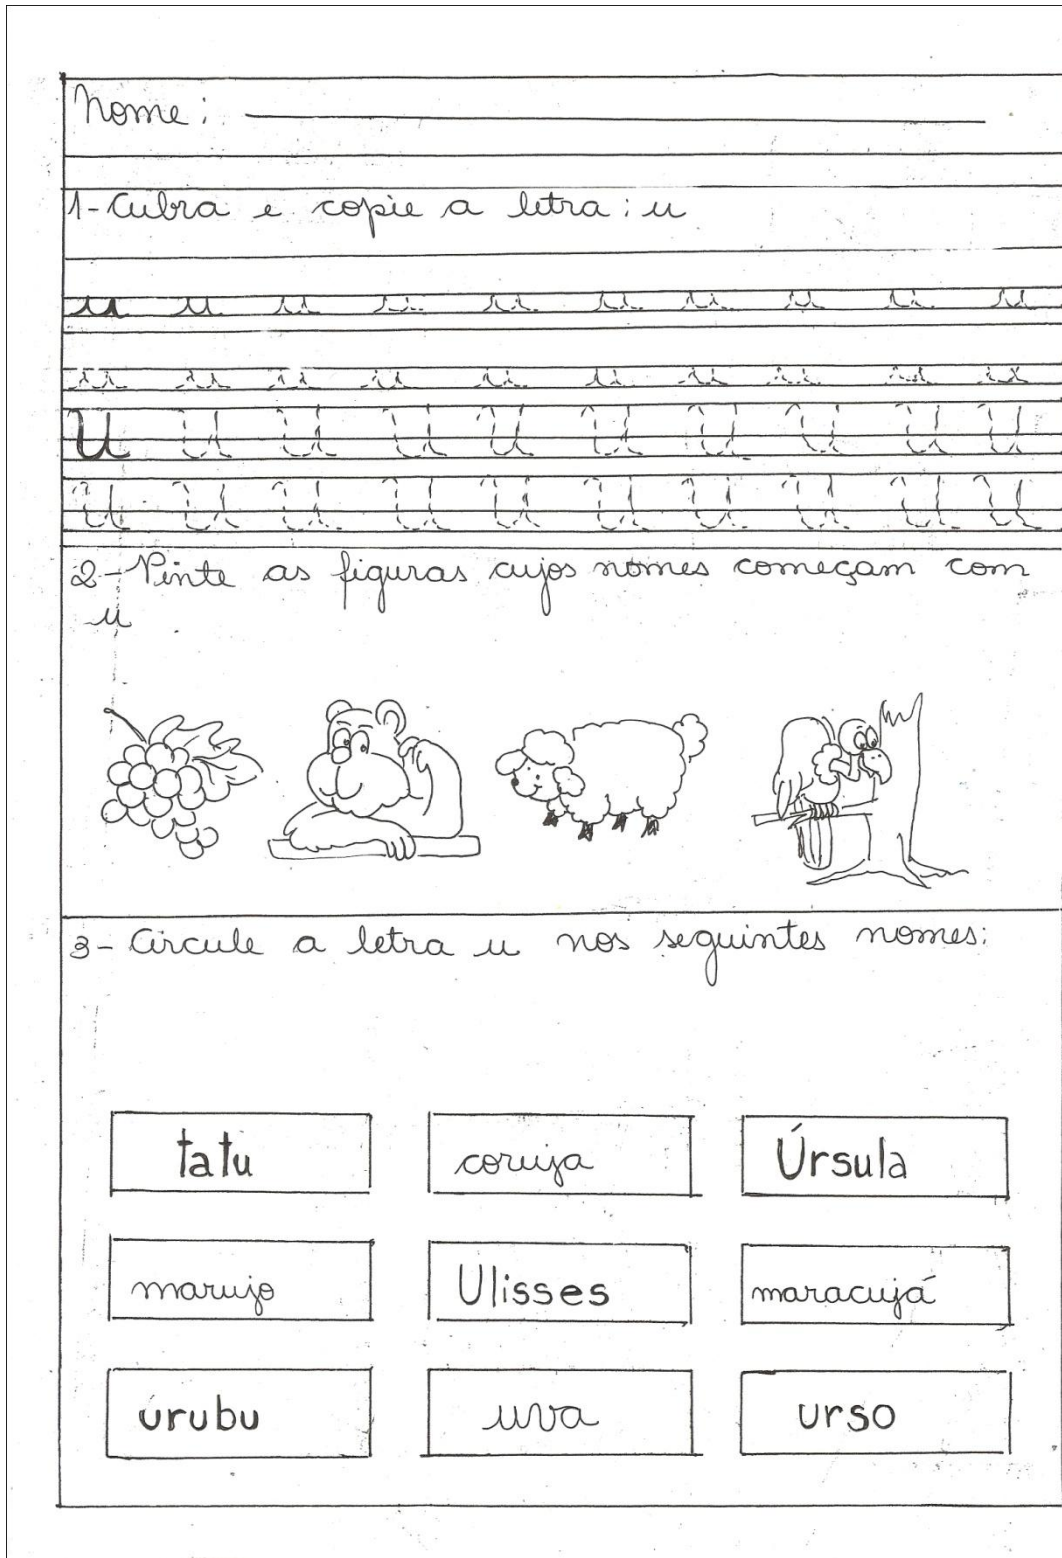 Nome:
1-Cubra e copie a letra: u
u u u u u u u u u u
u u u u u u u u u u
U U U U U U U U U U
U U U U U U U U U U
2-Pinte as figuras cujos nomes começam com
u
3-Circule a letra u nos seguintes nomes:
tatu coruja Úrsula
marujo Ulisses maracujá
urubu uva urso